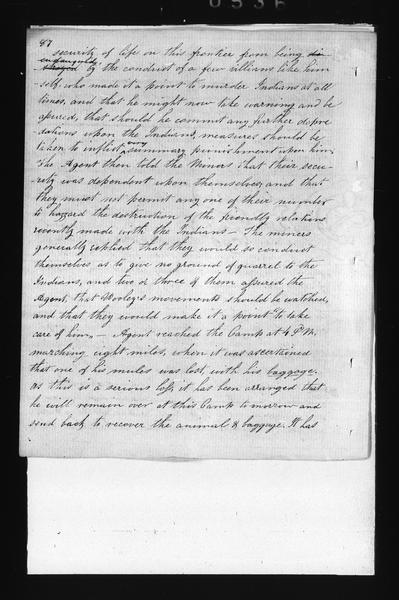 0536
87
security of life on this frontier from being
endangered by the conduct of a few villians like him
self, who made it a point to murder Indians at all
times, and that he might now take warning and be
assured, that should he commit any further depre
dations upon the Indians, measures should be
taken to inflict very summary punishment upon him.
The Agent then told the Miners that their secu-
rity was dependent upon themselves, and that
they must not permit any one of their number
to hazzard the destruction of the friendly relations
recently made with the Indians — The miners
generally replied that they would so conduct
themselves as to give no ground of quarrel to the
Indians, and two or three of them assured the
Agent, that Wooley's movements should be watched,
and that they would make it a point to take
care of him. — Agent reached the Camp at 4 P.M.
marching eight miles, when it was ascertained
that one of his mules was lost, with his baggage.
as this is a serious loss, it has been arranged that
he will remain over at this Camp tomorrow and
send back to recover the animal & baggage. It has